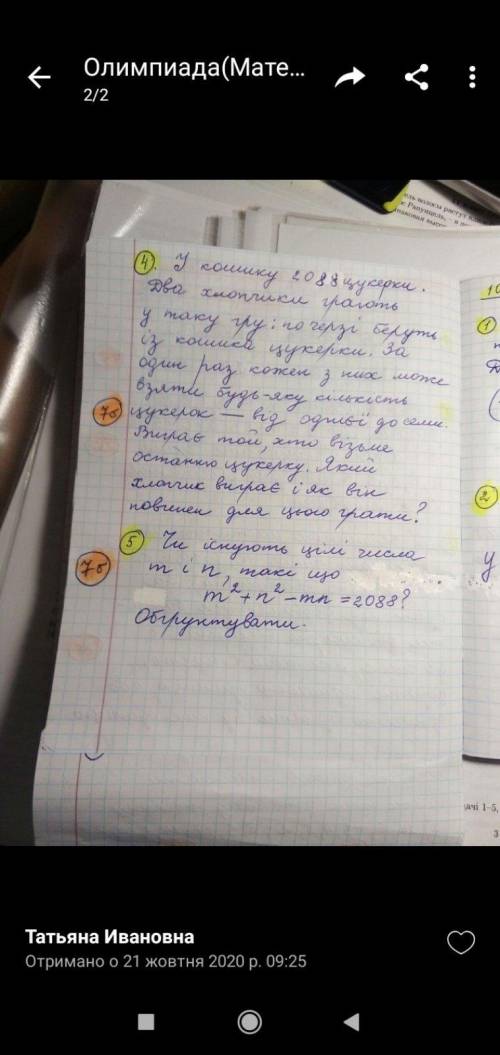 Олимпиада(Мате...
2/2
4. У кошику 2088 цукерки.
Два хлопчики грають
у таку гру: по черзі беруть
із кошика цукерки. За
один раз кожен з них може
взяти будь-яку кількість
7б цукерок — від однієї до семи.
Виграв той, хто візьме
останню цукерку. Який
хлопчик виграє і як він
повинен для цього грати?
5 Чи існують цілі числа
7б m і n, такі що
m²+n²-mn=2088?
Обґрунтувати.
10
1
2
у
дачі 1-5,
3
Татьяна Ивановна
Отримано о 21 жовтня 2020 р. 09:25